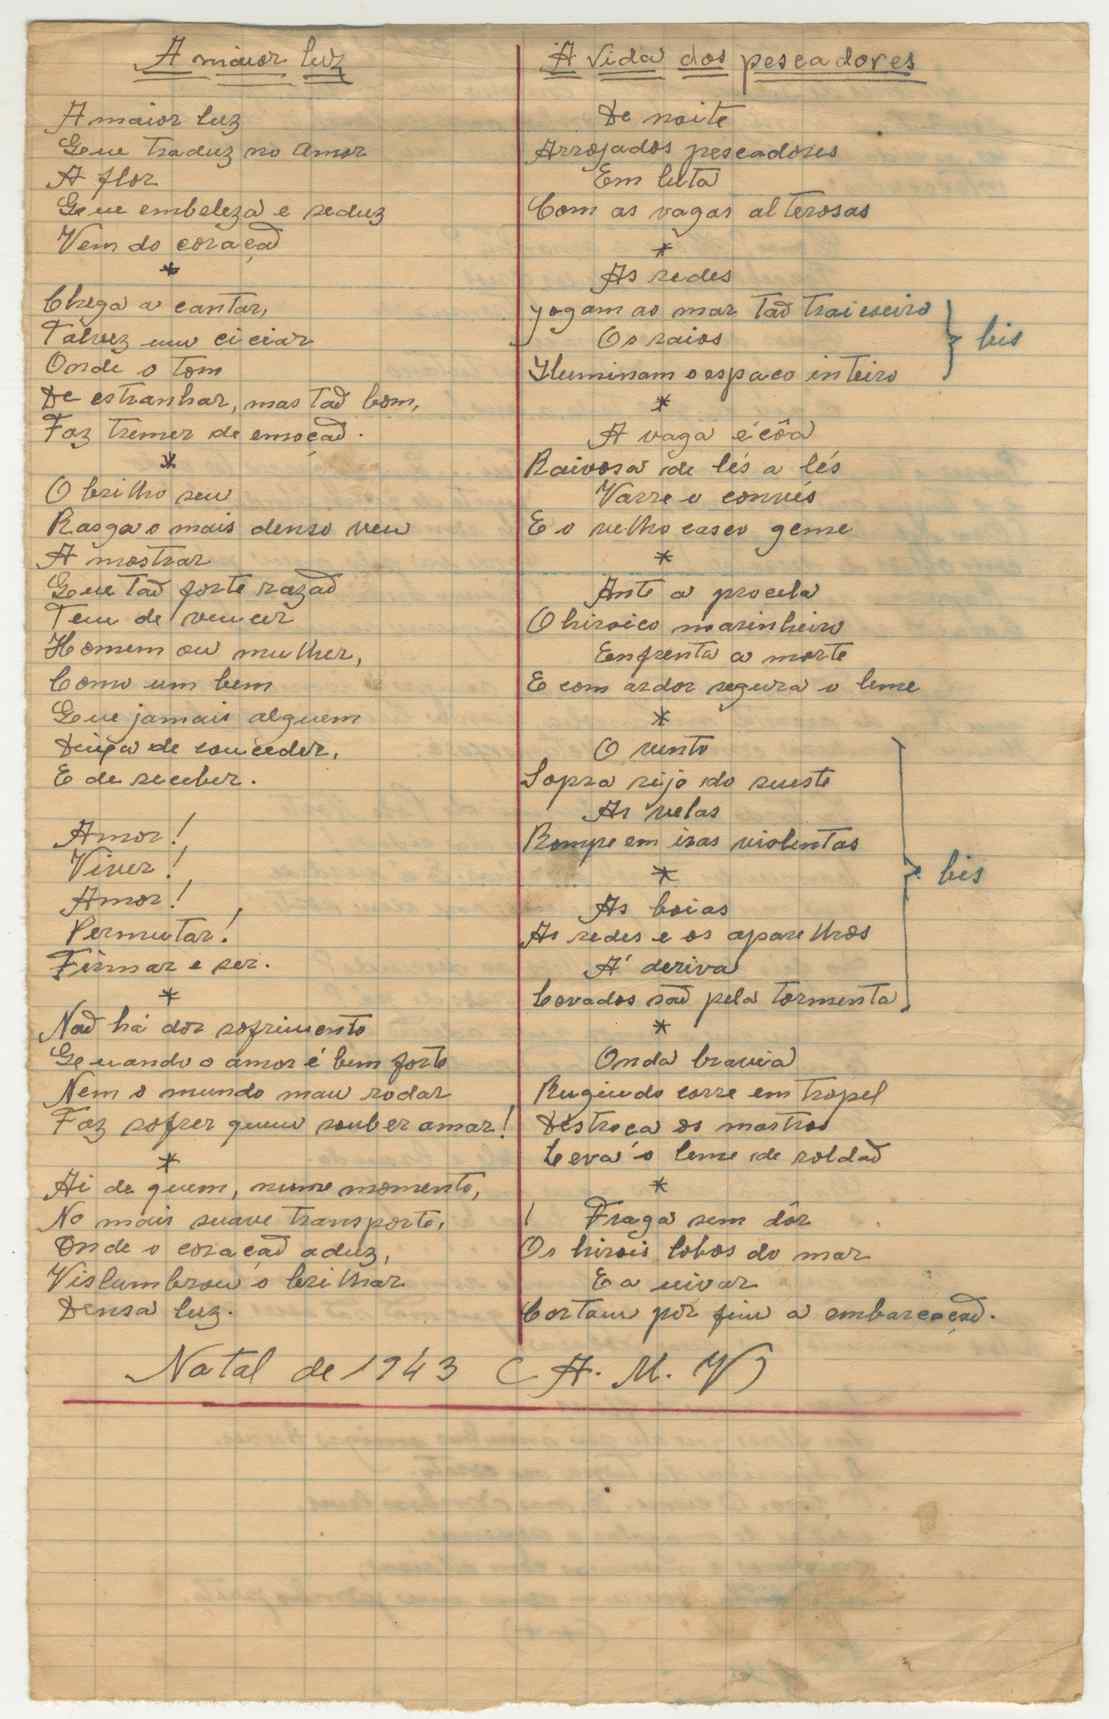 A maior luz
A maior luz
Que traduz no amor
A flor
Que embeleza e seduz
Vem do coração
*
Chega a cantar,
Talvez um ciciar
Onde o tom
De estranhar, mas tão bom,
Faz tremer de emoção.
*
O brilho seu
Rasga o mais denso veu
A mostrar
Que tão forte razão
Tem de vencer
Homem ou mulher,
Como um bem
Que jamais alguem
Deixa de conceder,
E de receber.
Amor!
Viver!
Amor!
Permutar!
Firmar e ser.
*
Não há dor sofrimento
Quando o amor é bem forte
Nem o mundo mau rodar
Faz sofrer quem souber amar!
*
Ai de quem, nume momento,
No mais suave transporte,
Onde o coração aduz,
Vislumbrou o brilhar
Densa luz.
A vida dos pescadores
De noite
Arrojados pescadores
Em luta
Com as vagas alterosas
*
As redes
Jogam ao mar tão traiçoeiro
Os raios
Iluminam o espaco inteiro
bis
*
A vaga écôa
Raivosa de lés a lés
Varre o convés
E o velho casco geme
*
Ante a procela
O hiroico marinheiro
Enfrenta a morte
E com ardor segura o leme
*
O vento
Sopra rijo do sueste
As velas
Rompe em iras violentas
*
As boias
As redes e os aparelhos
Á deriva
Levados são pela tormenta,
bis
*
Onda bravia
Rugindo corre em tropel
Destroça os mastros
Leva o leme de roldão
*
Traga sem dôr
Os hirois lobos do mar
E a uivar
Cortam por fim a embarcação.
Natal de 1943 (A. M. V)